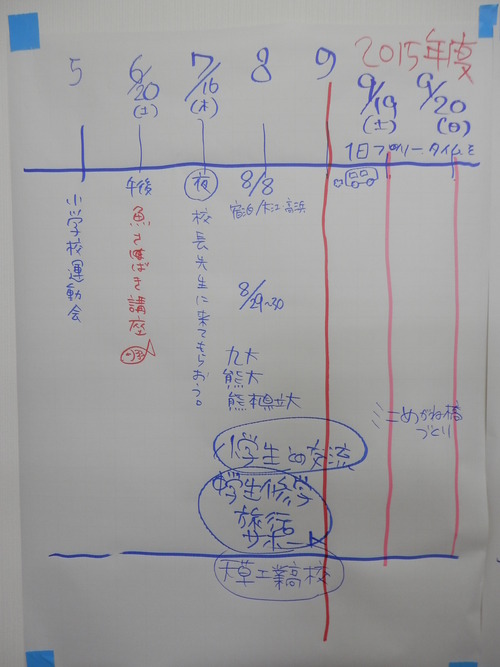 2015年度
5
6/20
(土)
7/16
(木)
8
9
9/19
(土)
9/20
(日)
1日フリータイムを
小学校運動会
午後
魚さばき講座
夜
校長先生に来てもらおう。
8/8
8/29~30
九大
熊大
熊本県立大
小学生との交流
中学生修学
旅行
サポート
天草工業高校
ミニめがね橋
づくり